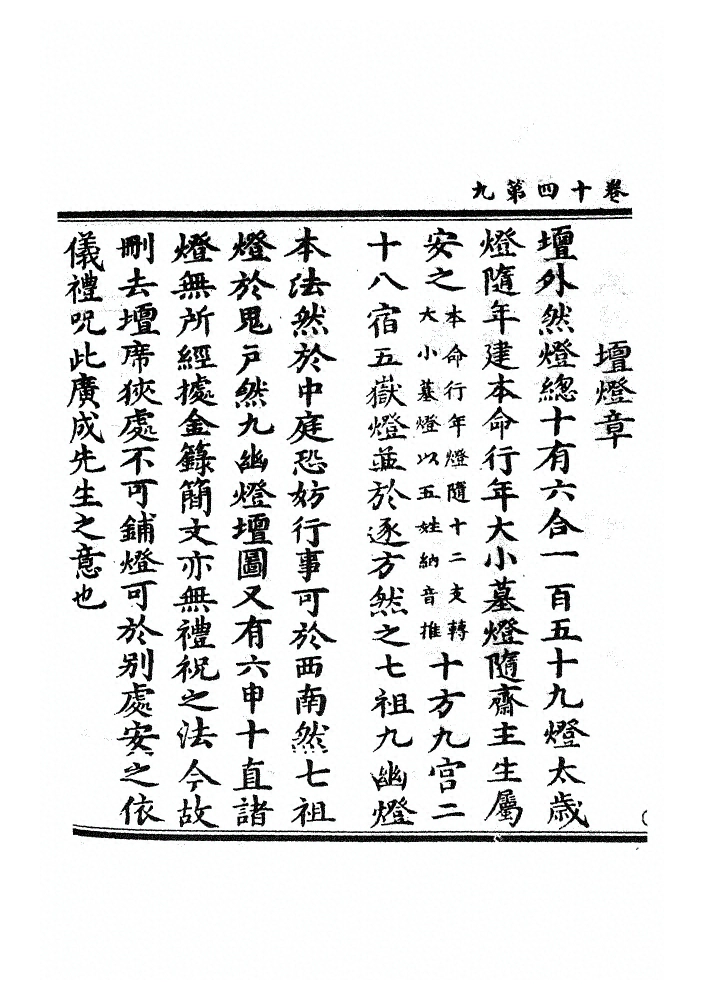 卷十四第九
壇燈章
壇外然燈總十有六合一百五十九燈太歲
燈隨年建本命行年大小墓燈隨齋主生屬
安之本命行年燈隨十二支轉大小墓燈以五姓納音推十方九宮二
十八宿五嶽燈並於逐方然之七祖九幽燈
本法然於中庭恐妨行事可於西南然七祖
燈於鬼戶然九幽燈壇圖又有六申十直諸
燈無所經據金籙簡文亦無禮祝之法今故
刪去壇席狹處不可鋪燈可於別處安之依
儀禮呪此廣成先生之意也